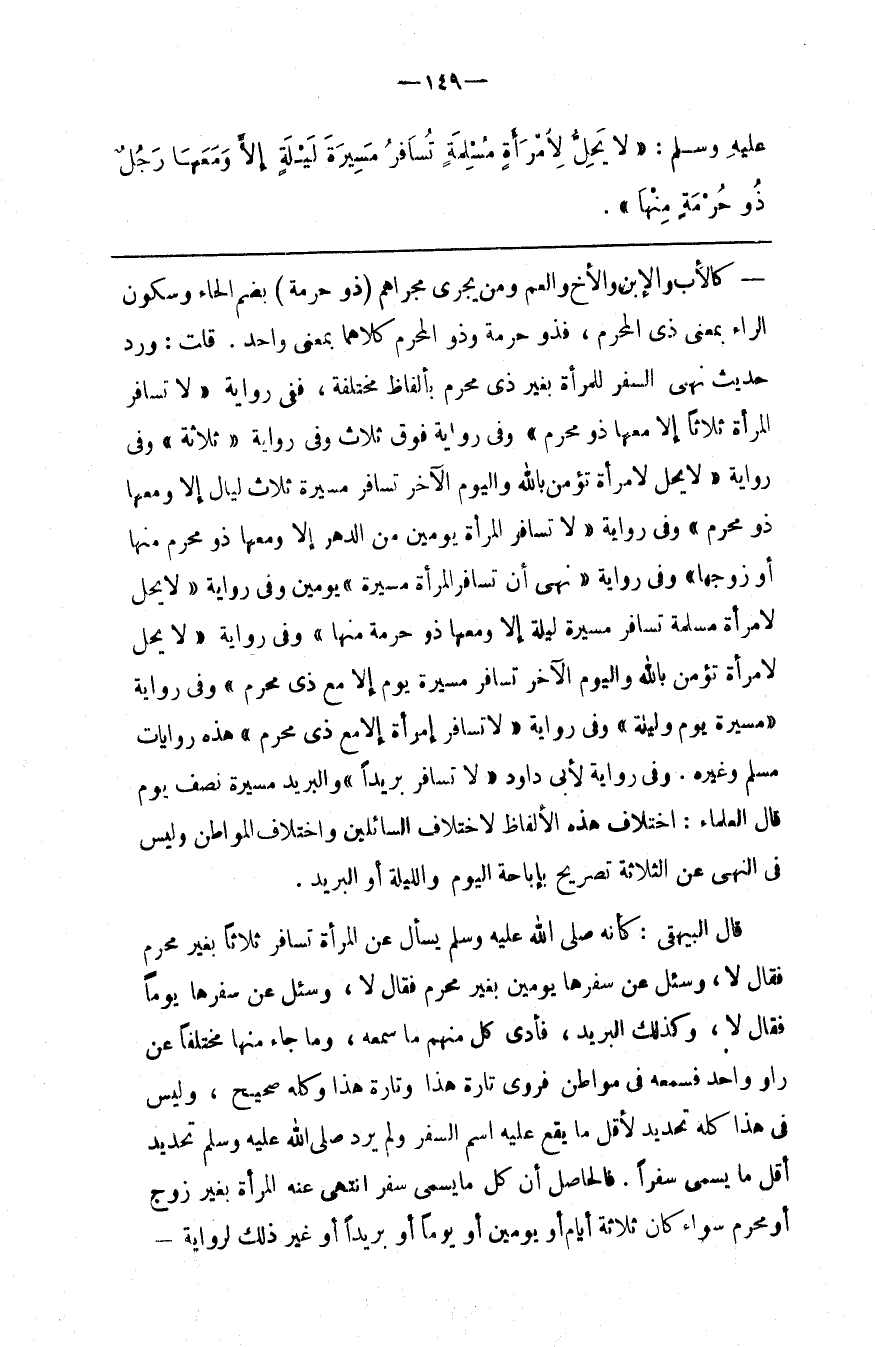 — ١٤٩ —
عليهِ وســلم : « لا يَحِلُّ لِأَمْرَأَةٍ مُسْلِمَةٍ تُسَافرُ مَسِيرَةَ لَيْـلَةٍ إلاَّ وَمَعَهـَا رَجُلٌ
ذُو حُرْمَةٍ مِنْهَا » .
— كالأب والإبن والأخ والعم ومن يجرى مجراهم (ذو حرمة) بضم الحاء وسكون
الراء بمعنى ذى المحرم ، فذو حرمة وذو المحرم كلاهما بمعنى واحد . قلت : ورد
حديث نهى السفر للمرأة بغير ذى محرم بألفاظ مختلفة ، ففى رواية « لا تسافر
المرأة ثلاثاً إلا معها ذو محرم » وفى رواية فوق ثلاث وفى رواية « ثلاثة » وفى
رواية « لايحل لامرأة تؤمن بالله واليوم الآخر تسافر مسيرة ثلاث ليال إلا ومعها
ذو محرم » وفى رواية « لا تسافر المرأة يومين من الدهر إلا ومعها ذو محرم منها
أو زوجها» وفى رواية « نهى أن تسافر المرأة مسيرة » يومين وفى رواية « لايحل
لامرأة مسلمة تسافر مسيرة ليلة إلا ومعها ذو حرمة منها » وفى رواية « لا يحل
لامرأة تؤمن بالله واليوم الآخر تسافر مسيرة يوم إلا مع ذى محرم » وفى رواية
«مسيرة يوم وليلة » وفى رواية « لاتسافر إمرأة إلامع ذى محرم » هذه روايات
مسلم وغيره . وفى رواية لأبى داود « لا تسافر بريداً » والبريد مسيرة نصف يوم
قال العلماء : اختلاف هذه الألفاظ لاختلاف السائلين واختلاف المواطن وليس
فى النهى عن الثلاثة تصريح بإباحة اليوم والليلة أو البريد .
قال البيهقى : كأنه صلى الله عليه وسلم يسأل عن المرأة تسافر ثلاثاً بغير محرم
فقال لا ، وسئل عن سفرها يومين بغير محرم فقال لا ، وسئل عن سفرها يوماً
فقال لا ، وكذلك البريد ، فأدى كل منهم ما سمعه ، وما جاء منها مختلفاً عن
راو واحد فسمعه فى مواطن فروى تارة هذا وتارة هذا وكله صحيح ، وليس
فى هذا كله تحديد لأقل ما يقع عليه اسم السفر ولم يرد صلى الله عليه وسلم تحديد
أقل ما يسمى سفراً . فالحاصل أن كل مايسمى سفر انتهى عنه المرأة بغير زوج
أو محرم سواء كان ثلاثة أيام أو يومين أو يوماً أو بريداً أو غير ذلك لرواية —